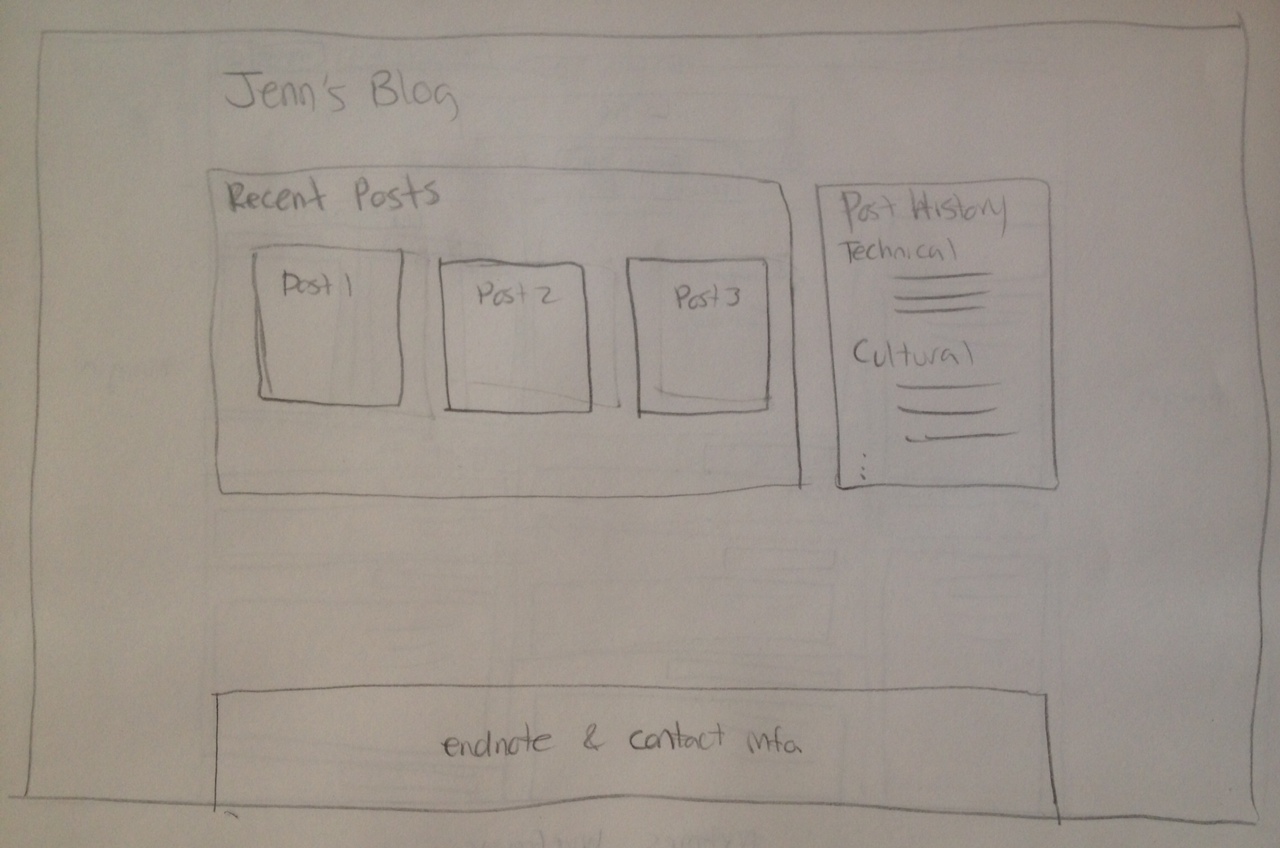 Jenn's Blog
Recent Posts
Post 1
Post 2
Post 3
Post History
Technical
Cultural
endnote & contact info